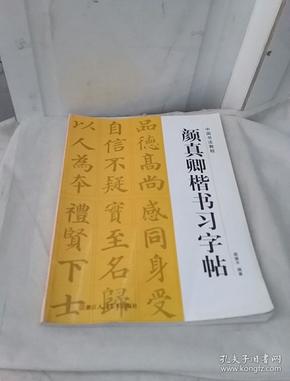 中国书法教程
颜真卿楷书习字帖
品德高尚感同身受
自信不疑實至名歸
以人為本禮賢下士
孔夫子旧书网